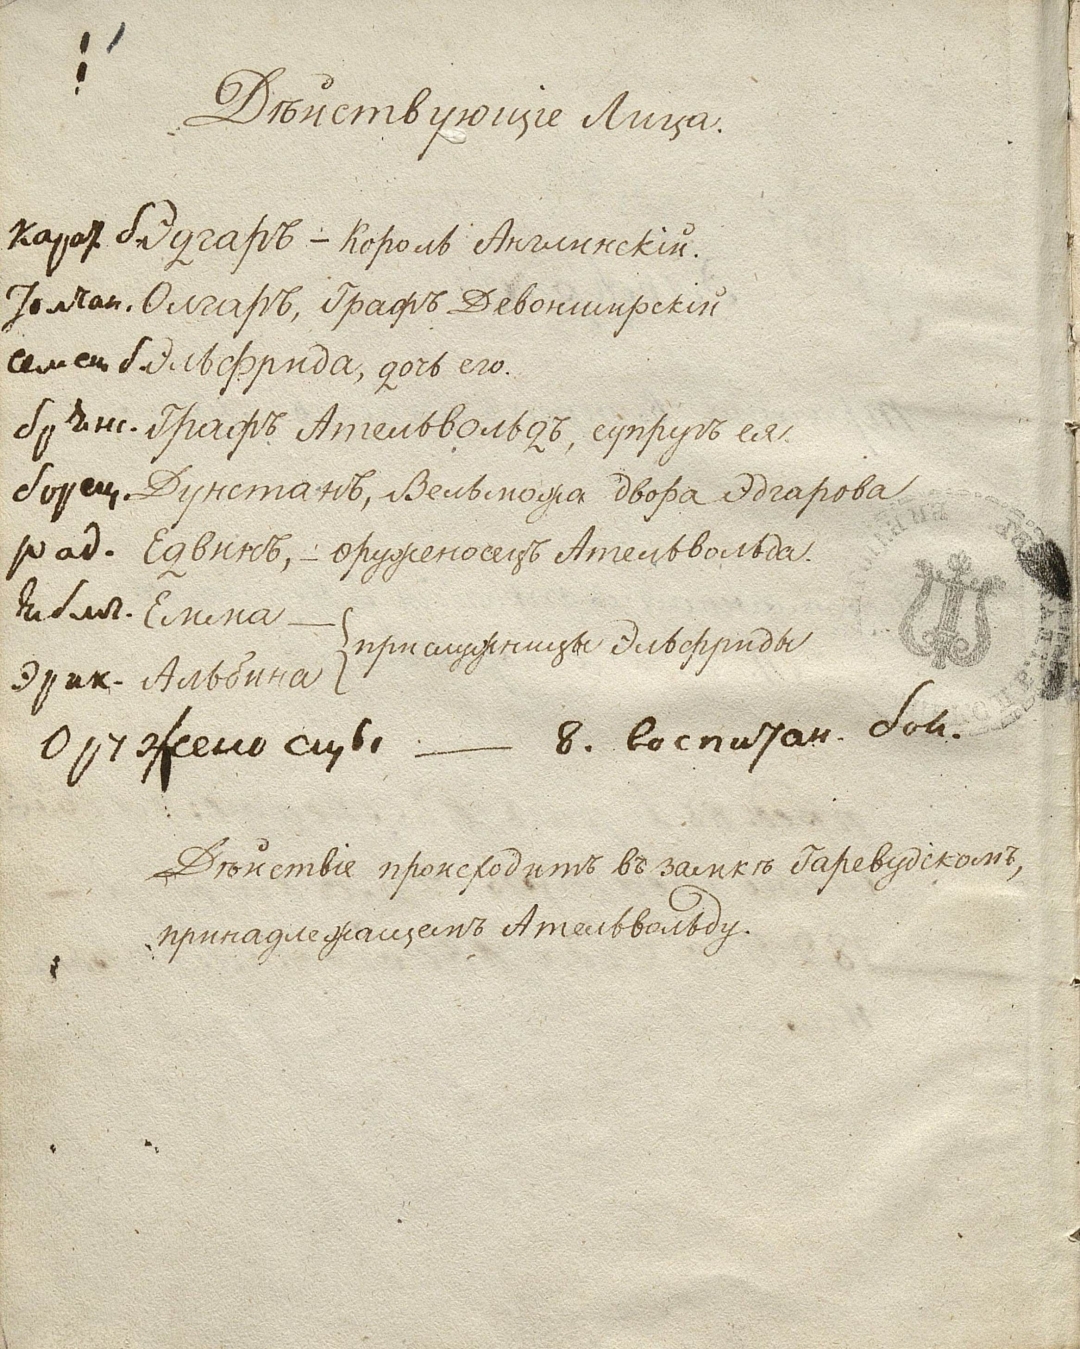 Дѣйствующіе Лица.
Карат. б. Эдгаръ – Король Англинскій.
Толчан. Олгаръ, Графъ Девонширскій
Семен б. Эльфрида, дочь его.
брян. Графъ Ательвольдъ, супругъ ея.
борец. Дунстанъ, Вельможа двора Эдгарова
рад. Едвинъ, – оруженосецъ Ательвольда.
Емма —
прислужницы Эльфриды
Альбина
Оруженосцы — 8. воспитан. бой.
Дѣйствіе происходитъ въ замкѣ Гаревудскомъ,
принадлежащемъ Ательвольду.